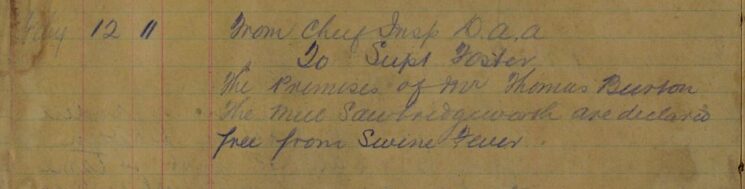 12 "
From Chief Insp D.a.a
To Supt Foster
The Premises of Mr Thomas Burton
The Mill Sawbridgeworth are declared
free from Swine Fever.